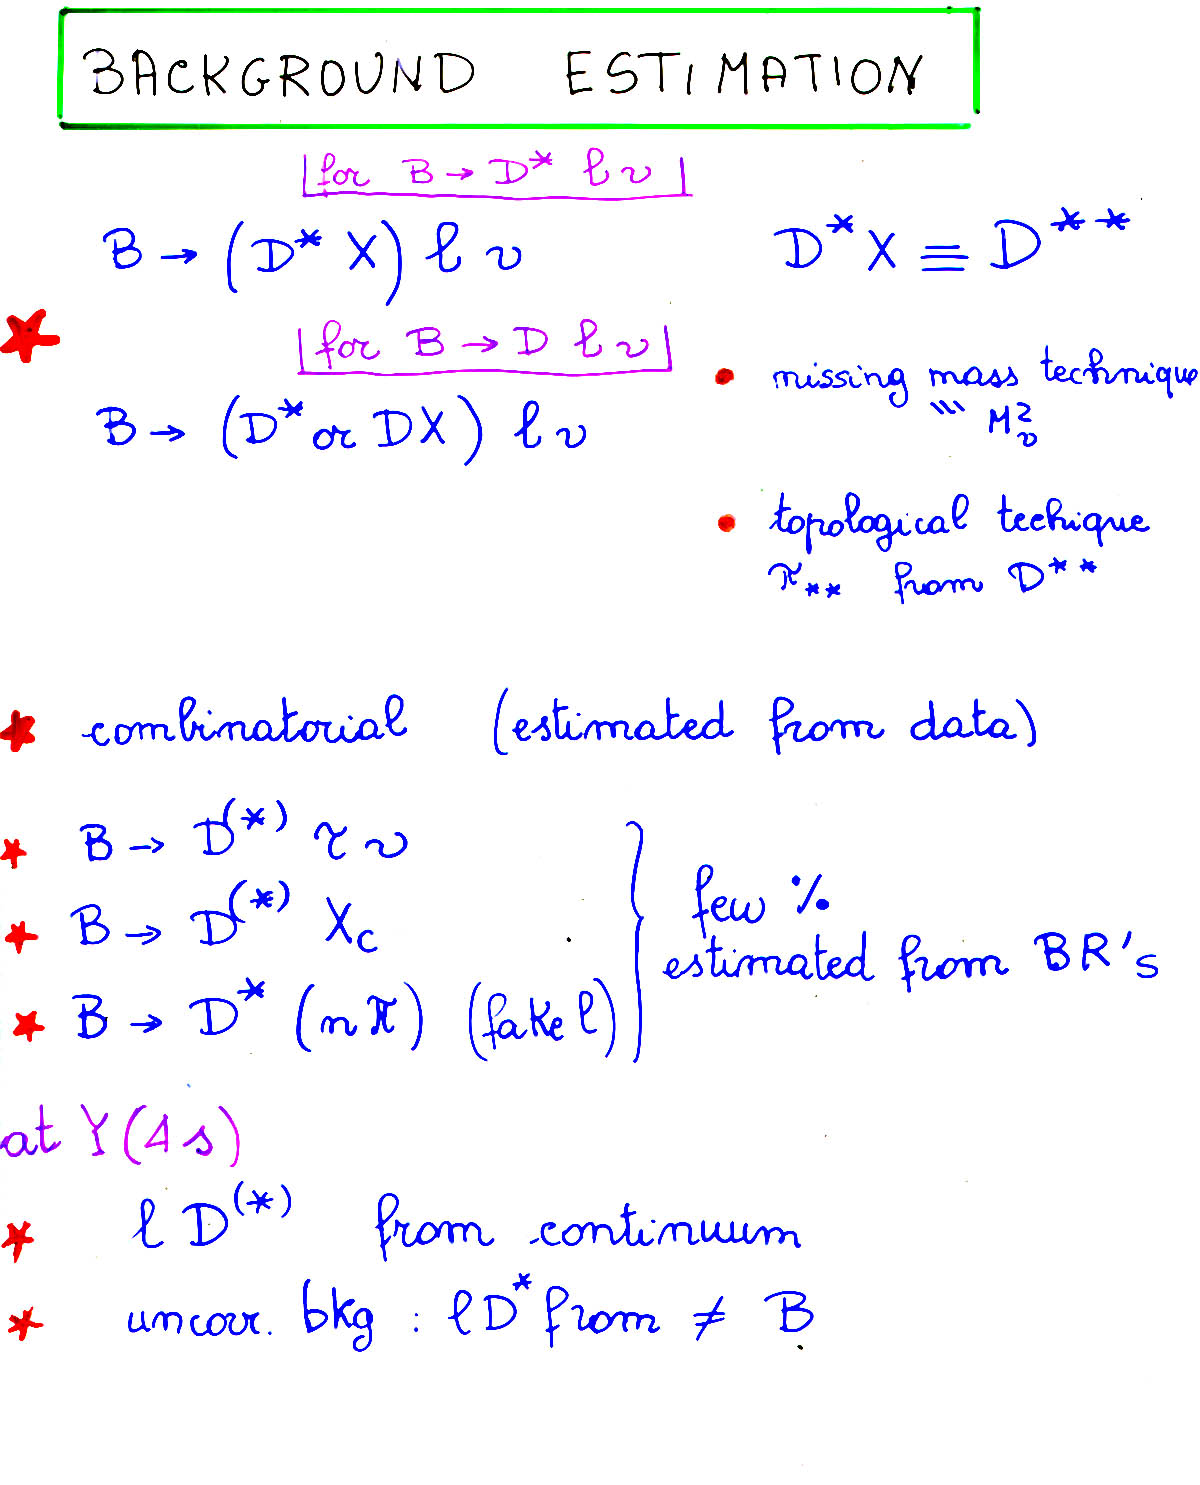 BACKGROUND ESTIMATION
for B → D* ℓ ν
B → (D* X) ℓ ν
D* X ≡ D**
for B → D ℓ ν
B → (D* or DX) ℓ ν
• missing mass technique
""" M²ᵥ
• topological techique
π** from D**
★ combinatorial (estimated from data)
★ B → D(*) τ ν
★ B → D(*) Xc
★ B → D* (nπ) (fake ℓ)
few %
estimated from BR's
at Υ(4s)
★ ℓ D(*) from continuum
★ uncorr. bkg : ℓD* from ≠ B